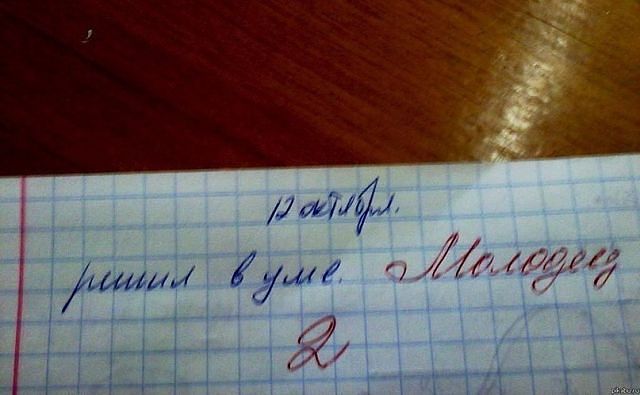 12 октября.
решил в уме. Молодец
2
pikabu.ru